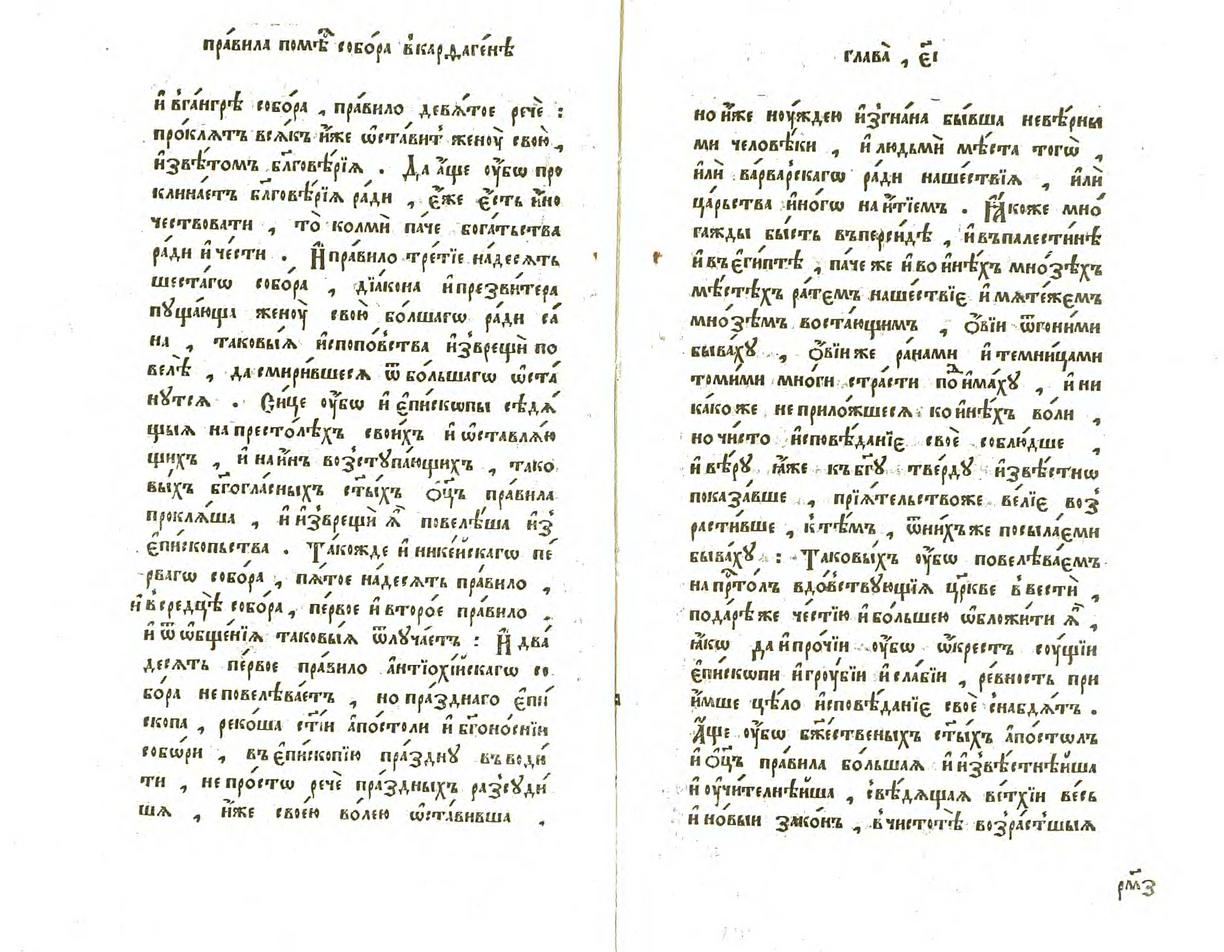 пра́вила помѣ́ⷭ собо́ра в̾кардаге́нѣ
и҆ в̾га́нгрѣ собо́ра , пра́вило девѧ́тое речѐ :
про́клѧтъ всѧ́къ и҆́же ѡ҆ста́витъ женоу̀ свою̀ ,
и҆звѣ́томъ бл҃говѣ́рїѧ . Да а҆́ще оу҆́бѡ про
клина́етъ бл҃говѣ́рїѧ ра́ди , є҆́же є҆́сть и҆́но
чествовати , то̀ колмѝ па́че бога́тьства
ра́ди и҆ че́сти . И҆ пра́вило тре́тїе на́десѧть
шеста́гѡ собо́ра , дїа́кона и҆ презви́тера
пꙋща́юща женоу̀ свою̀ бо́лшагѡ ра́ди са́
на , таковы́ѧ и҆спопо́вства и҆зврещѝ по
велѣ̀ , да смири́вшесѧ ѿ бо́льшагѡ ѡ҆ста́
нутсѧ . Си́це оу҆́бѡ и҆ є҆пи́скѡпы сѣдѧ́
щыѧ на престо́лѣхъ свои́хъ и҆ ѡ҆ставлѧ́ю
щихъ , и҆ на и҆́нъ воз̾ступа́ющихъ , тако
вы́хъ бг҃огла́сныхъ ст҃ы́хъ ѻ҆ц҃ъ пра́вила
проклѧ́ша , и҆ и҆зврещѝ ѧ҆̀ повелѣ́ша из̾
є҆пи́скопьства . Та́кожде и҆ нике́йскагѡ пе́
рвагѡ собо́ра , пѧ́тое на́десѧть пра́вило ,
и҆ в̾средцѣ́ собо́ра , пе́рвое и҆ второ́е пра́вило .
и҆ ѿ ѡ҆бще́нїѧ таковы́ѧ ѿлꙋча́етъ : И҆ два́
десѧть пе́рвое пра́вило а҆нтїѡхі́йскагѡ со
бо́ра не повелѣва́етъ , но пра́зднаго є҆пи́
скопа , реко́ша ст҃і́и а҆по́столи и҆ бг҃оно́снїи
собѡ́ри , въ є҆писко́пїю пра́зднꙋ въводи́
ти , не про́стѡ речѐ пра́здныхъ разсꙋди́
шѧ , и҆́же свое́ю во́лею ѡ҆ста́вивша .
глава̀ , є҃і
но и҆́же ноу́ждею и҆з̾гна́на бы́вша невѣ́рны
ми человѣ́ки , и҆ людьмѝ мѣ́ста тогѡ̀ ,
и҆лѝ ва́рварскагѡ ра́ди наше́ствїѧ , и҆лѝ
ца́рьства и҆но́гѡ на и҆́тїемъ . Ꙗ҆́коже мно́
гажды бы́сть въ пе́рсидѣ , и҆ въ палести́нѣ
и҆ въ є҆ги́птѣ , паче же и҆ во и҆нѣ́хъ мно́зѣхъ
мѣ́стѣхъ ра́темъ наше́ствїє и҆ мѧте́жемъ
мно́зѣмъ востаю́щимъ , ѻ҆́вїи ѿгони́ми
быва́хꙋ , ѻ҆́вїи же ра́нами и҆ темни́цами
томи́ми мно́ги стра́сти поⷣи҆ма́хꙋ , и҆ ни
ка́коже не прило́жшесѧ ко и҆нѣ́хъ во́ли ,
но чи́сто и҆сповѣ́данїє своѐ соблю́дше ,
и҆ вѣ́рꙋ ꙗ҆́же къ бг҃ꙋ тве́рдꙋ и҆звѣ́стнѡ
показа́вше , прїѧ́тельствоже ве́лїе воз̾
расти́вше , к̾тѣ́мъ , ѿни́хъже посыла́еми
быва́хꙋ : Таковы́хъ оу҆́бѡ повелѣва́емъ
на прⷭ҇то́лъ вдо́вствꙋющїѧ цр҃кве в̾вестѝ ,
подарѣ́же че́стїю и҆ бо́льшею ѡ҆бложи́ти ѧ҆̀ ,
ꙗ҆́кѡ да и҆ про́чїи оу҆́бѡ ѡ҆́крестъ соу́щїи
є҆пи́скѡпи и҆ гроу́бїи и҆ сла́бїи , ре́вность при
и҆́мше цѣ́ло и҆сповѣ́данїє своѐ снабдѧ́тъ .
А҆́ще оу҆́бѡ бж҃е́ственыхъ ст҃ы́хъ а҆по́столъ
и҆ ѻ҆ц҃ъ пра́вила бо́льшаѧ и҆ и҆звѣ́стнѣйша
и҆ оу҆чи́телнѣйша , свѣ́дѧщаѧ ве́тхїи ве́сь
и҆ но́выи зако́нъ , в̾чистотѣ̀ воз̾ра́стшыѧ
рм҃з